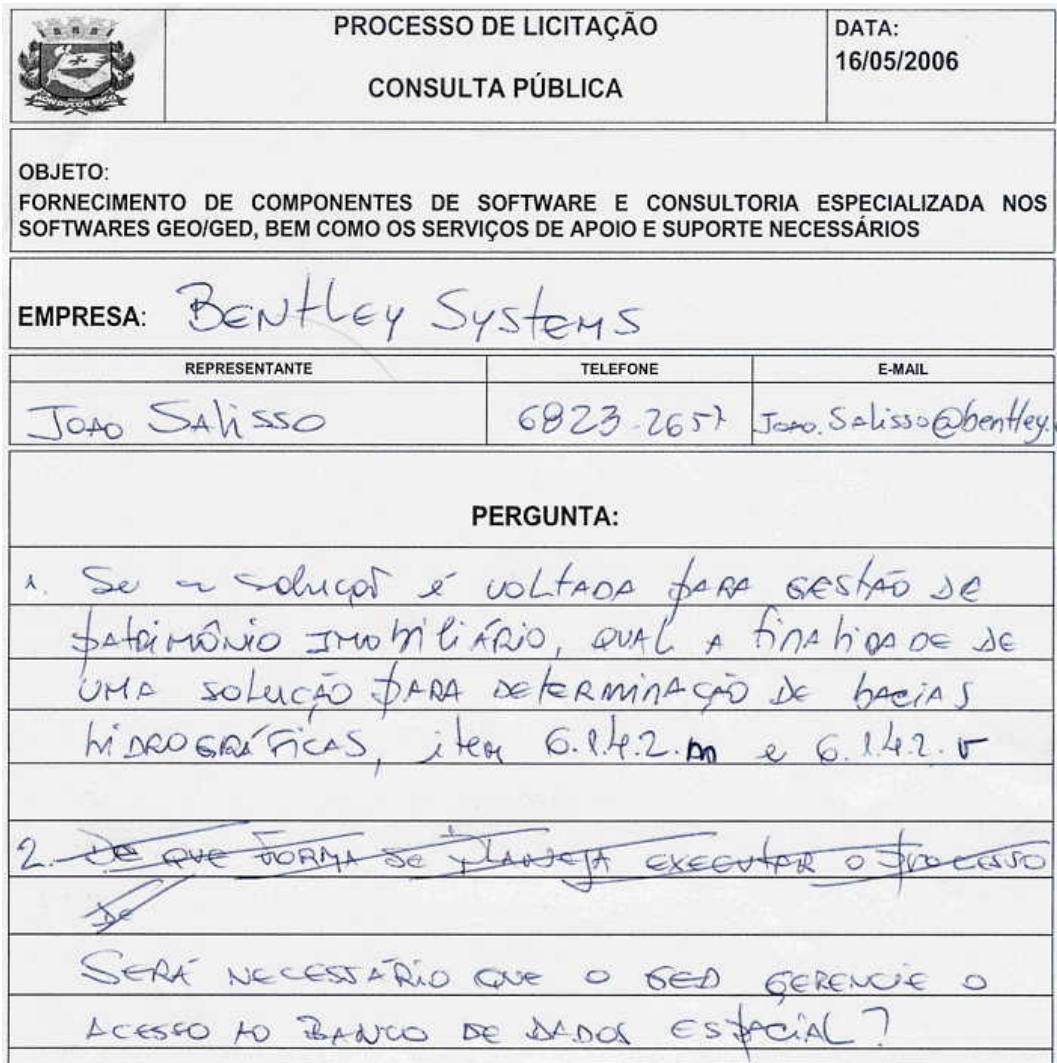 PROCESSO DE LICITAÇÃO
CONSULTA PÚBLICA
DATA:
16/05/2006
OBJETO:
FORNECIMENTO DE COMPONENTES DE SOFTWARE E CONSULTORIA ESPECIALIZADA NOS
SOFTWARES GEO/GED, BEM COMO OS SERVIÇOS DE APOIO E SUPORTE NECESSÁRIOS
EMPRESA: BENTLEY SYSTEMS
REPRESENTANTE
TELEFONE
E-MAIL
JOAO SALISSO
6823-2657
Joao.Salisso@bentley.
PERGUNTA:
1. Se a solução é VOLTADA PARA GESTÃO DE
PATRIMÔNIO IMOBILIÁRIO, QUAL A FINALIDADE DE
UMA SOLUÇÃO PARA DETERMINAÇÃO DE BACIAS
HIDROGRÁFICAS, item 6.1.4.2.m e 6.1.4.2.v
2. DE QUE FORMA SE PLANEJA EXECUTAR O PROCESSO
DE
SERÁ NECESSÁRIO QUE O GED GERENCIE O
ACESSO AO BANCO DE DADOS ESPACIAL?